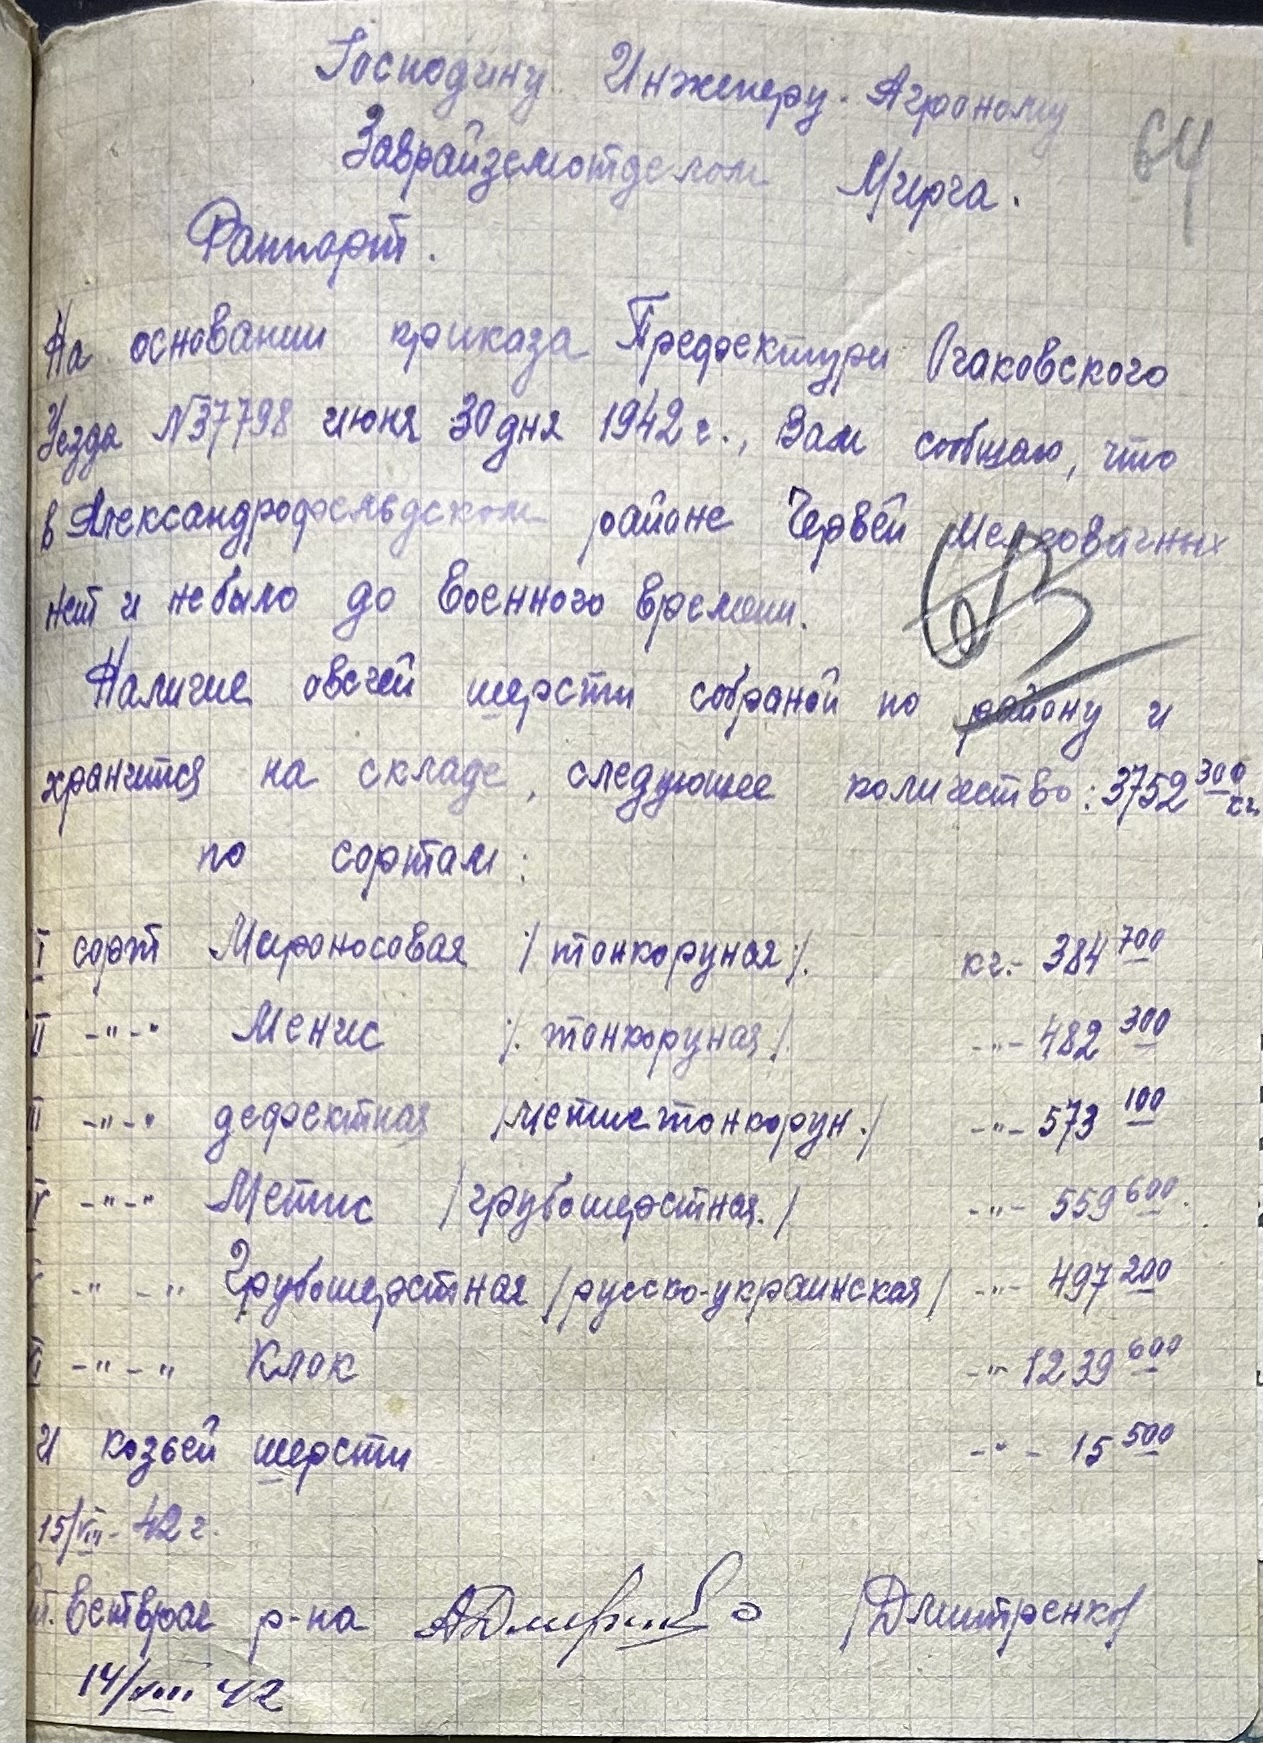 Господину Инженеру-Агроному
64
Заврайземотделом Мирга.
Раппорт.
На основании приказа Префектури Очаковского
Уезда №37798 июня 30 дня 1942 г., Вам сообщаю, что
в Александрофельдском районе Червей Шелковичных
нет и небыло до Военного Времени.
Наличие овечей шерсти собраной по району и
хранится на складе, следующее количество: 3752 300 кг.
по сортам:
I сорт Мириносовая /тонкоруная/. кг.- 384 700
II -"-" Менис /тонкоруная/. -"- 482 300
III -"-" дефектная /метистонкорун./ -"- 573 100
IV -"-" Метис /грубошерстная./ -"- 559 600.
V -"-" Грубошерстная /русско-украинская/ -"- 497 200
VI -"-" Клок -"- 1239 600
и козьей шерсти -"- 15 500
15/VIII-42 г.
Ст. Ветврач р-на /Дмитренко/
14/VIII 42